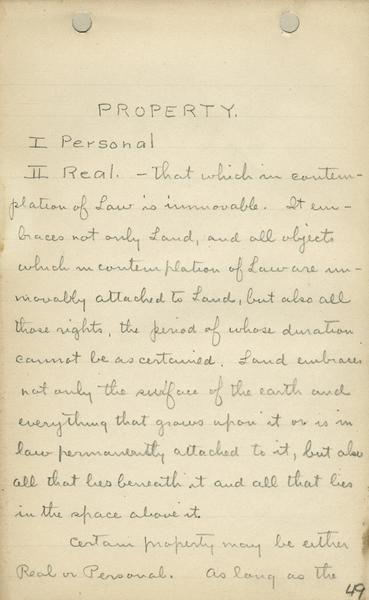 PROPERTY.
I Personal
II Real. - That which in contem-
plation of Law is immovable. It em-
braces not only Land, and all objects
which in contemplation of Law are im-
movably attached to Land, but also all
those rights, the period of whose duration
cannot be ascertained. Land embraces
not only the surface of the earth and
everything that grows upon it or is in
law permanently attached to it, but also
all that lies beneath it and all that lies
in the space above it.
Certain property may be either
Real or Personal. As long as the
49